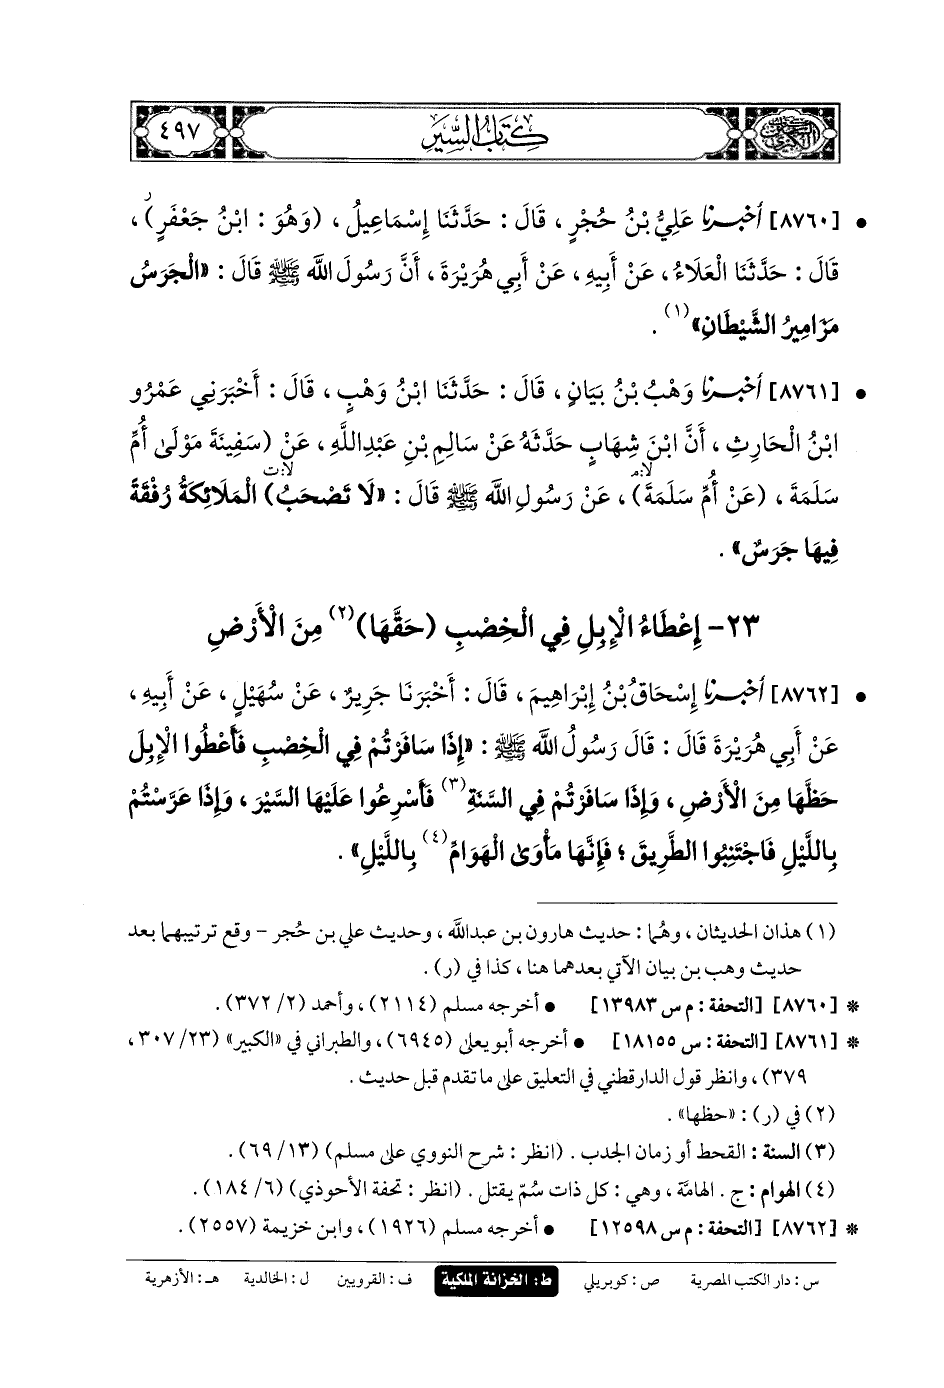 السنن الكبرى كتاب السير ٤٩٧
• [٨٧٦٠] أخبرنا عَلِيُّ بْنُ حُجْرٍ ، قَالَ : حَدَّثَنَا إِسْمَاعِيلُ ، (وَهُوَ : ابْنُ جَعْفَرٍ)ر ،
قَالَ : حَدَّثَنَا الْعَلَاءُ ، عَنْ أَبِيهِ ، عَنْ أَبِي هُرَيْرَةَ ، أَنَّ رَسُولَ اللَّه ﷺ قَالَ : «الْجَرَسُ
مَزَامِيرُ الشَّيْطَانِ»(١) .
• [٨٧٦١] أخبرنا وَهْبُ بْنُ بَيَانٍ ، قَالَ : حَدَّثَنَا ابْنُ وَهْبٍ ، قَالَ : أَخْبَرَنِي عَمْرُو
ابْنُ الْحَارِثِ ، أَنَّ ابْنَ شِهَابٍ حَدَّثَهُ عَنْ سَالِمِ بْنِ عَبْدِاللَّهِ ، عَنْ (سَفِينَةَ مَوْلَىٰ أُمِّ
سَلَمَةَ ، (عَنْ أُمِّ سَلَمَةَ) ، عَنْ رَسُولِ اللَّه ﷺ قَالَ : «لَا تَصْحَبُ) الْمَلَائِكَةُ رُفْقَةً
فِيهَا جَرَسٌ» .
٢٣- إِعْطَاءُ الْإِبِلِ فِي الْخِصْبِ (حَقَّهَا)(٢) مِنَ الْأَرْضِ
• [٨٧٦٢] أخبرنا إِسْحَاقُ بْنُ إِبْرَاهِيمَ ، قَالَ : أَخْبَرَنَا جَرِيرٌ ، عَنْ سُهَيْلٍ ، عَنْ أَبِيهِ ،
عَنْ أَبِي هُرَيْرَةَ قَالَ : قَالَ رَسُولُ اللَّه ﷺ : «إِذَا سَافَرْتُمْ فِي الْخِصْبِ فَأَعْطُوا الْإِبِلَ
حَظَّهَا مِنَ الْأَرْضِ ، وَإِذَا سَافَرْتُمْ فِي السَّنَةِ(٣) فَأَسْرِعُوا عَلَيْهَا السَّيْرَ ، وَإِذَا عَرَّسْتُمْ
بِاللَّيْلِ فَاجْتَنِبُوا الطَّرِيقَ ؛ فَإِنَّهَا مَأْوَىٰ الْهَوَامِّ(٤) بِاللَّيْلِ» .
(١) هذان الحديثان ، وهُما : حديث هارون بن عبداللَّه ، وحديث علي بن حُجر - وقع ترتيبهما بعد
حديث وهب بن بيان الآتي بعدهما هنا ، كذا في (ر) .
* [٨٧٦٠] [التحفة : م س ١٣٩٨٣] • أخرجه مسلم (٢١١٤) ، وأحمد (٢/ ٣٧٢) .
* [٨٧٦١] [التحفة : س ١٨١٥٥] • أخرجه أبو يعلى (٦٩٤٥) ، والطبراني في «الكبير» (٢٣/ ٣٠٧ ،
٣٧٩) ، وانظر قول الدارقطني في التعليق على ما تقدم قبل حديث .
(٢) في (ر) : «حظها» .
(٣) السنة : القحط أو زمان الجدب . (انظر : شرح النووي على مسلم) (١٣/ ٦٩) .
(٤) الهوام : ج . الهامَّة ، وهي : كل ذات سُمّ يقتل . (انظر : تحفة الأحوذي) (٦/ ١٨٤) .
* [٨٧٦٢] [التحفة : م س ١٢٥٩٨] • أخرجه مسلم (١٩٢٦) ، وابن خزيمة (٢٥٥٧) .
س : دار الكتب المصرية ص : كوبريلي ط : الخزانة الملكية ف : القرويين ل : الخالدية هـ : الأزهرية